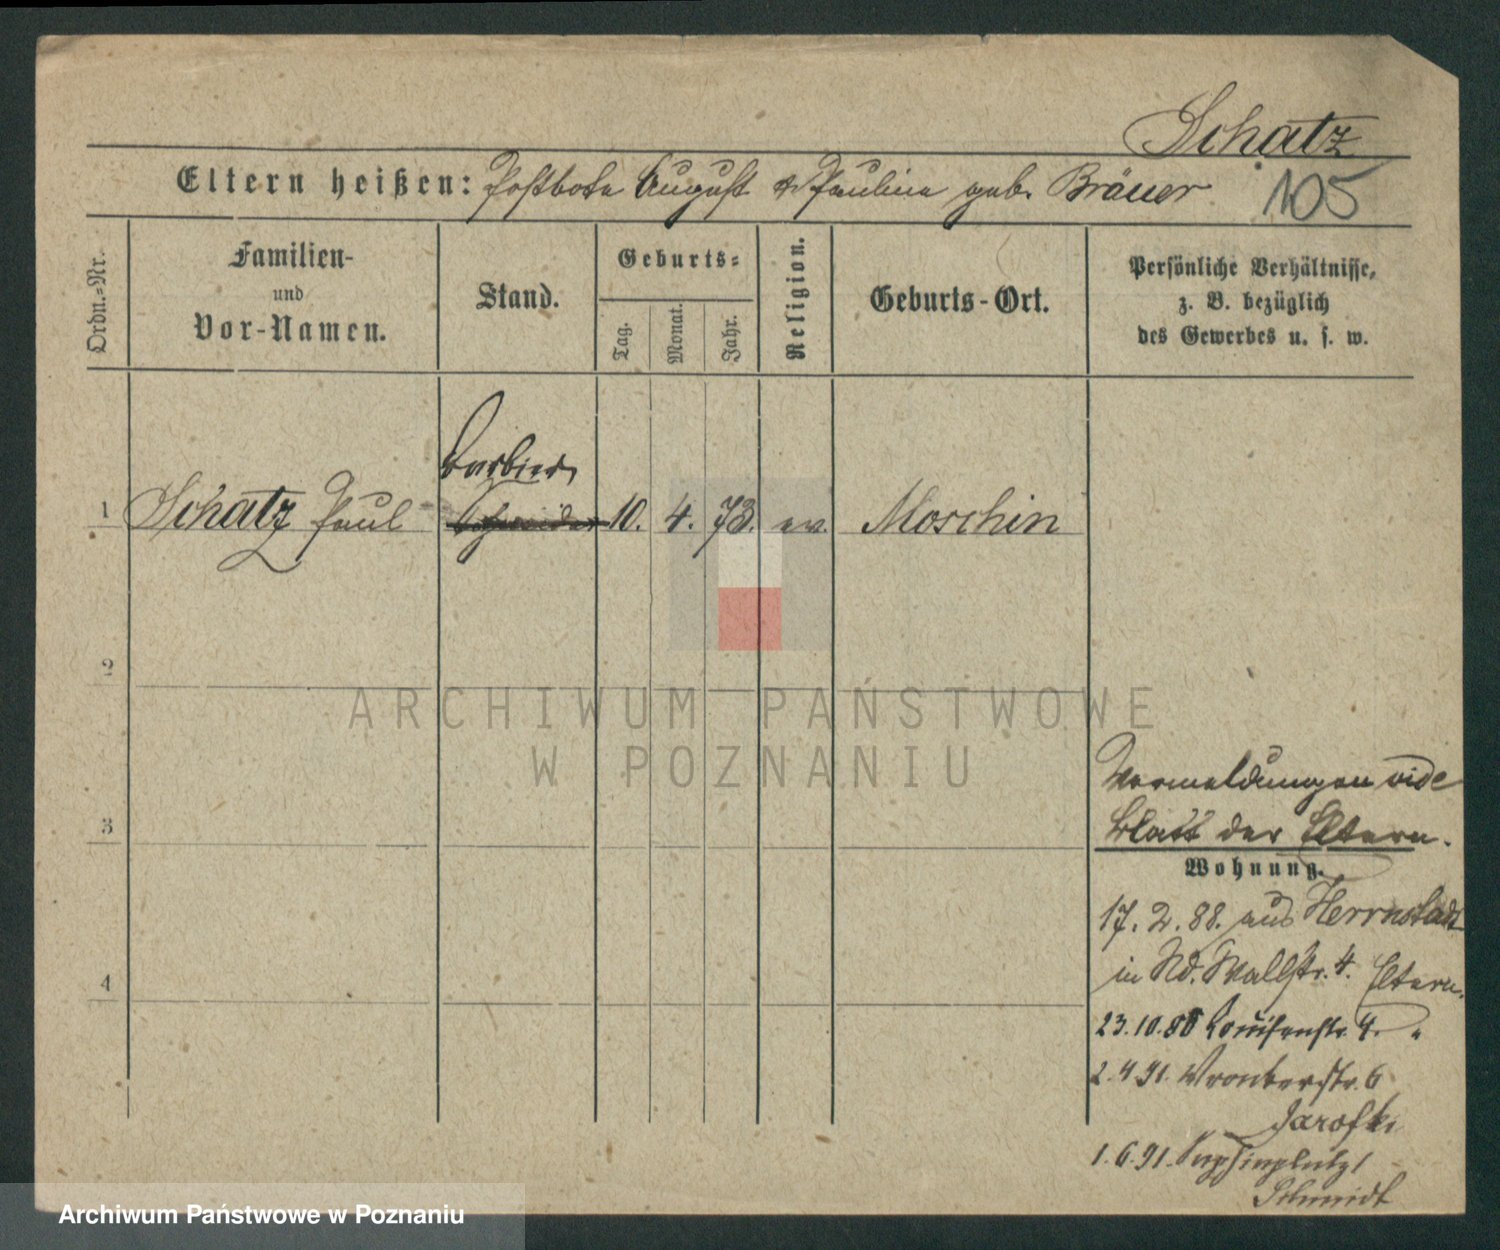 Schatz
Eltern heißen: Postbote August & Pauline geb. Bräuer
105
Ordn.-Nr.
Familien-
und
Vor-Namen.
Stand.
Geburts-
Tag.
Monat.
Jahr.
Religion.
Geburts-Ort.
Persönliche Verhältnisse,
z. B. bezüglich
des Gewerbes u. s. w.
Barbier
1 Schatz Paul 10. 4. 73. ev. Moschin
2
3
4
Vermeldungen vide
Blatt der Eltern.
Wohnung.
17. 2. 88. aus Herrnstadt
in Nd. Wallstr. 4. Eltern.
23. 10. Louisenstr. 4. "
2. 4 91. Wronkerstr. 6
Jarofki
1. 6. 91. Sapiehaplatz 1
Schmidt
ARCHIWUM PAŃSTWOWE
W POZNANIU
Archiwum Państwowe w Poznaniu